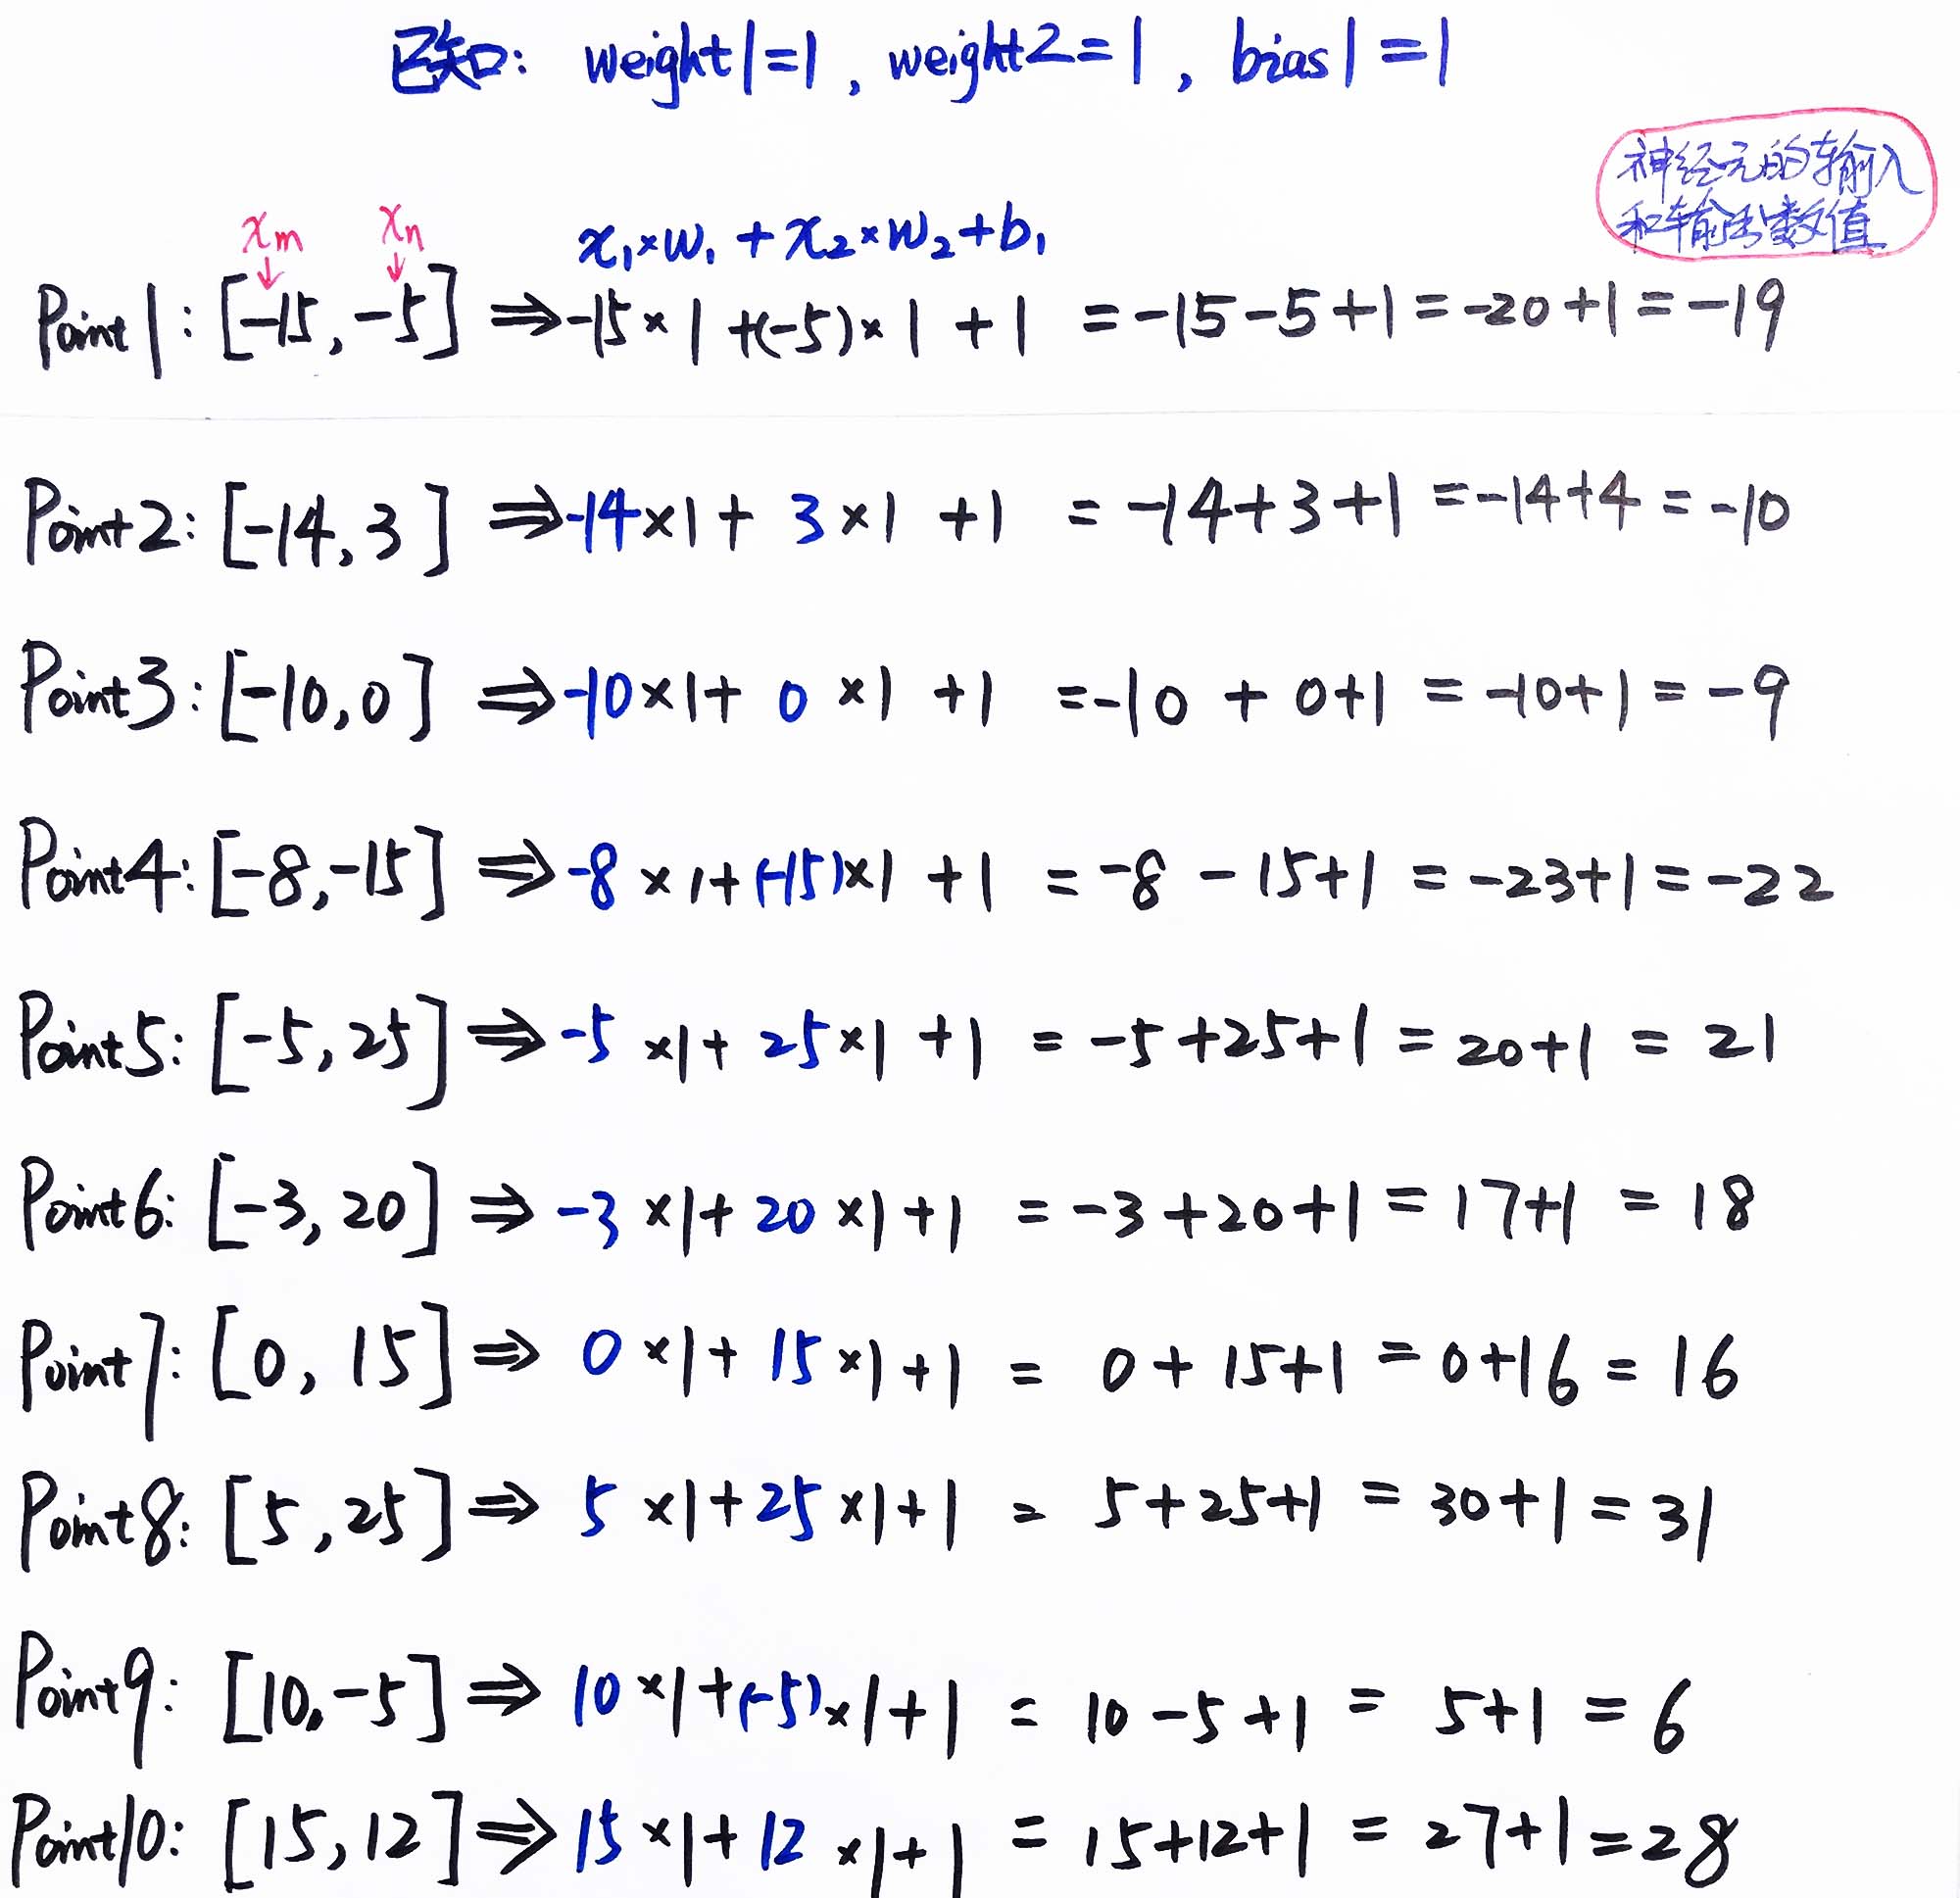 已知: weight1=1, weight2=1, bias1=1
神经元的输入
和输出数值
xm xn
x₁×w₁+x₂×w₂+b₁
Point1: [-15, -5] ⇒ -15×1+(-5)×1+1 = -15-5+1 = -20+1 = -19
Point2: [-14, 3] ⇒ -14×1+3×1+1 = -14+3+1 = -14+4 = -10
Point3: [-10, 0] ⇒ -10×1+0×1+1 = -10+0+1 = -10+1 = -9
Point4: [-8, -15] ⇒ -8×1+(-15)×1+1 = -8-15+1 = -23+1 = -22
Point5: [-5, 25] ⇒ -5×1+25×1+1 = -5+25+1 = 20+1 = 21
Point6: [-3, 20] ⇒ -3×1+20×1+1 = -3+20+1 = 17+1 = 18
Point7: [0, 15] ⇒ 0×1+15×1+1 = 0+15+1 = 0+16 = 16
Point8: [5, 25] ⇒ 5×1+25×1+1 = 5+25+1 = 30+1 = 31
Point9: [10, -5] ⇒ 10×1+(-5)×1+1 = 10-5+1 = 5+1 = 6
Point10: [15, 12] ⇒ 15×1+12×1+1 = 15+12+1 = 27+1 = 28